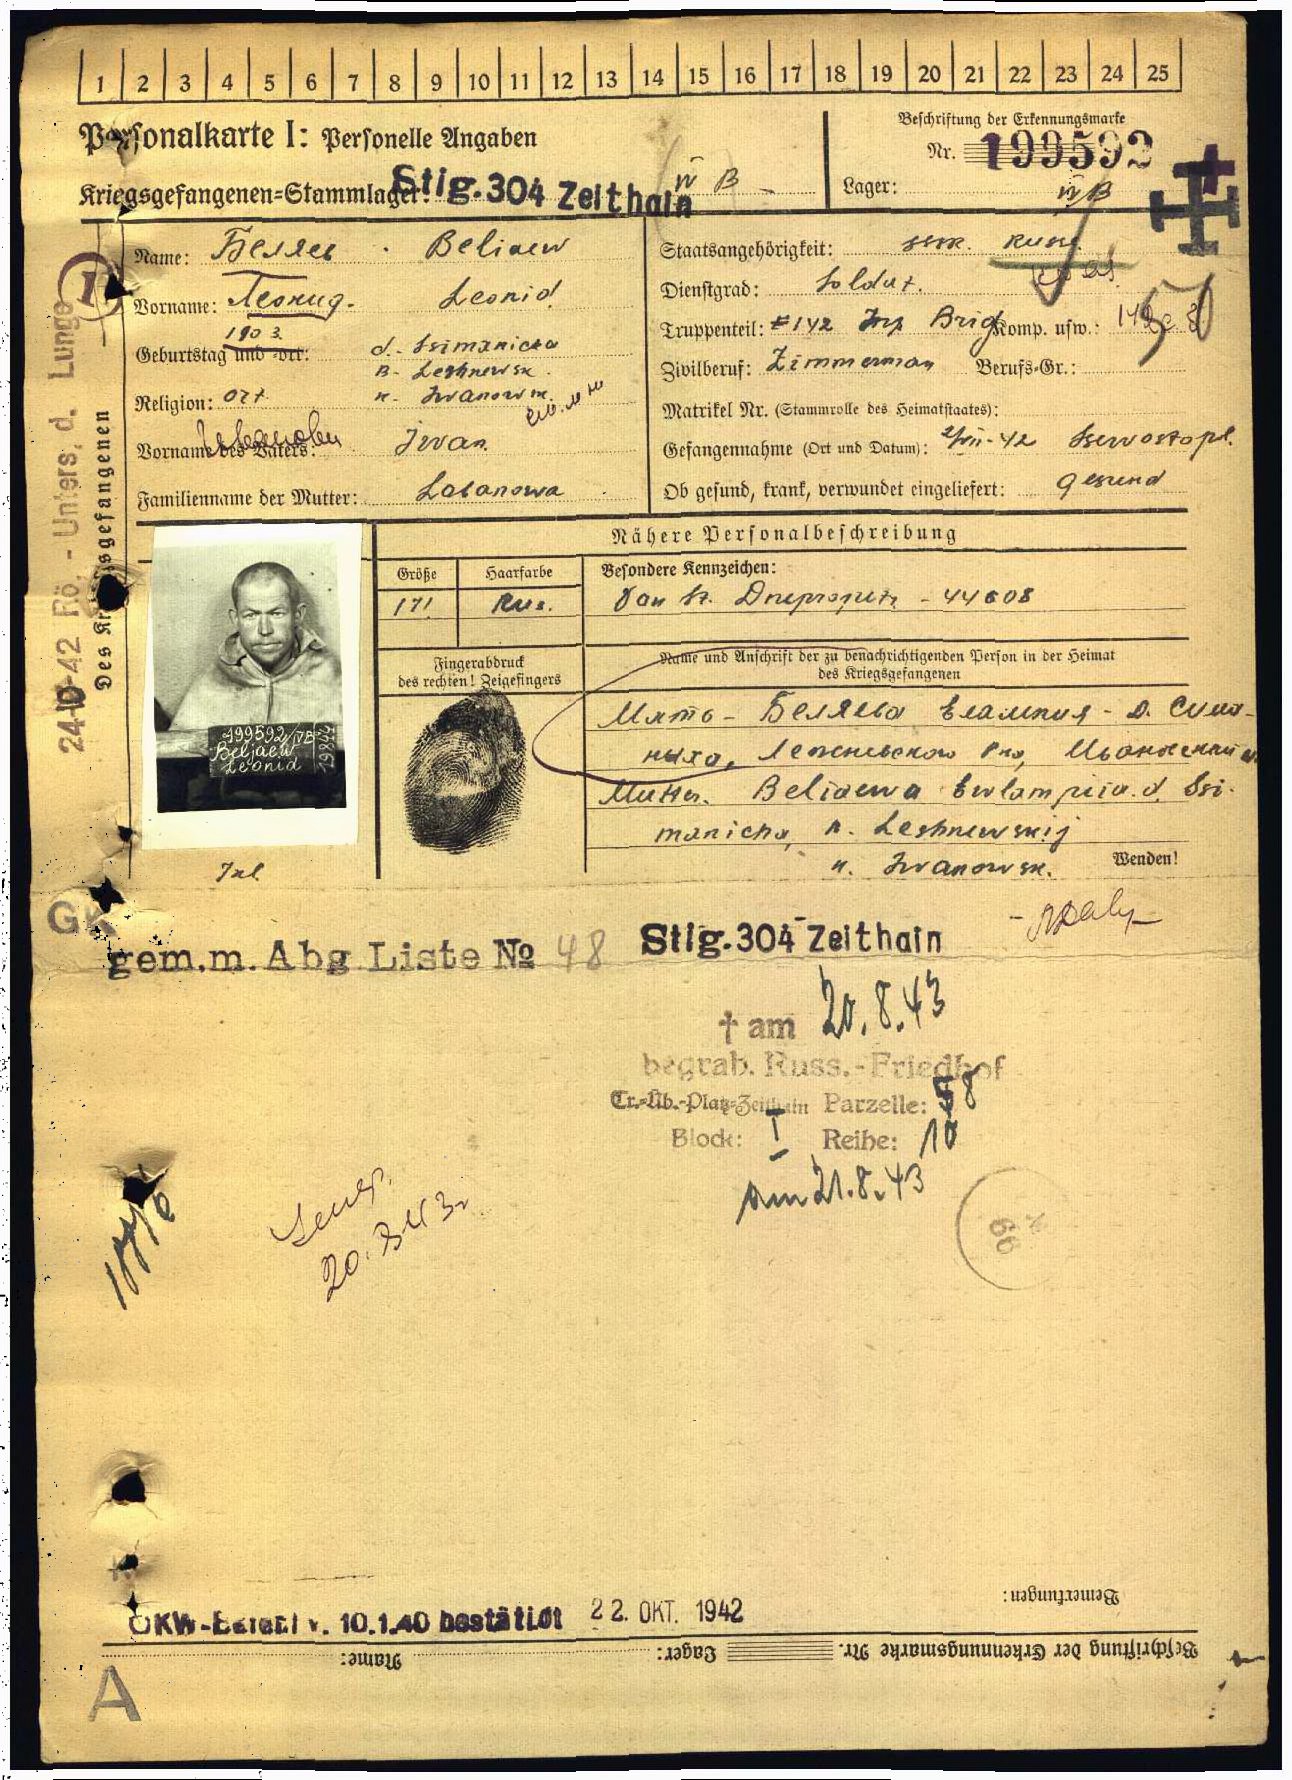 1 2 3 4 5 6 7 8 9 10 11 12 13 14 15 16 17 18 19 20 21 22 23 24 25
Personalkarte I: Personelle Angaben
Kriegsgefangenen-Stammlager: Stlg. 304 Zeithain IV B
Beschriftung der Erkennungsmarke
Nr. 199592
Lager: IV B
Des Kriegsgefangenen
Name: Беляев Beliaew
Vorname: Леонид. Leonid
Geburtstag und -ort: 1903. d. Ssimanicha
R- Leshnewsk.
Religion: ort n. Iwanowsk.
Vorname des Vaters: Iwan.
Familienname der Mutter: Labanowa
Staatsangehörigkeit: Russ.
Dienstgrad: Soldat.
Truppenteil: #142 Brig Komp. usw.: 142
Zivilberuf: Zimmerman Berufs-Gr.:
Matrikel Nr. (Stammrolle des Heimatstaates):
Gefangennahme (Ort und Datum): 2/VII-42 Ssewostopl.
Ob gesund, krank, verwundet eingeliefert: gesund
24.10.42 Rö.-Unters. d. Lunge
I
Nähere Personalbeschreibung
Größe Haarfarbe Besondere Kennzeichen:
171 Rus. Von St. Dnepropetr. - 44608
Fingerabdruck
des rechten! Zeigefingers
Name und Anschrift der zu benachrichtigenden Person in der Heimat
des Kriegsgefangenen
Мать - Беляева Евлампия - д. Сима-
ниха, Лежневского Р-на, Ивановский
Mutter. Beliaewa Ewlampija. d. Ssi-
manicha, R. Leshnewskij
n. Iwanowsk. Wenden!
199592/IVB
Beljaew
Leonid
GK
gem. m. Abg Liste № 48
Stlg. 304 Zeithain
† am 20.8.43
begrab. Russ.-Friedhof
Tr.-Üb.-Platz-Zeithain Parzelle: 58
Block: I Reihe: 10
am 21.8.43
20.8.43
66
Bemerkungen:
OKW-Befehl v. 10.1.40 bestätigt 22. OKT. 1942
Beschriftung der Erkennungsmarke Nr. Lager: Name:
A